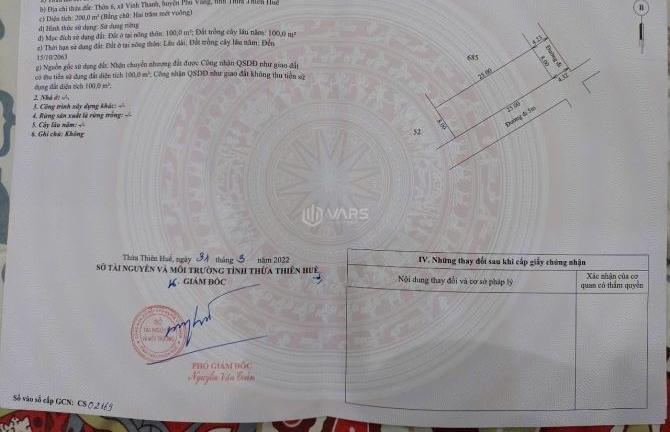 b) Địa chỉ thửa đất: Thôn 6, xã Vinh Thanh, huyện Phú Vang, tỉnh Thừa Thiên Huế
c) Diện tích: 200,0 m² (Bằng chữ: Hai trăm mét vuông)
d) Hình thức sử dụng: Sử dụng riêng
đ) Mục đích sử dụng đất: Đất ở tại nông thôn: 100,0 m²; Đất trồng cây lâu năm: 100,0 m²
e) Thời hạn sử dụng đất: Đất ở tại nông thôn: Lâu dài; Đất trồng cây lâu năm: Đến
15/10/2063
g) Nguồn gốc sử dụng đất: Nhận chuyển nhượng đất được Công nhận QSDĐ như giao đất
có thu tiền sử dụng đất diện tích 100,0 m²; Công nhận QSDĐ như giao đất không thu tiền sử
dụng đất diện tích 100,0 m².
2. Nhà ở: -/-
3. Công trình xây dựng khác: -/-
4. Rừng sản xuất là rừng trồng: -/-
5. Cây lâu năm: -/-
6. Ghi chú: Không
B
685
4.23
8.00
Đường đi
25.00
4.32
23.00
8.00
Đường đi 5m
52
VARS
Thừa Thiên Huế, ngày 31 tháng 3 năm 2022
SỞ TÀI NGUYÊN VÀ MÔI TRƯỜNG TỈNH THỪA THIÊN HUẾ
GIÁM ĐỐC
SỞ
TÀI NGUYÊN
VÀ MÔI TRƯỜNG
PHÓ GIÁM ĐỐC
IV. Những thay đổi sau khi cấp giấy chứng nhận
Nội dung thay đổi và cơ sở pháp lý
Xác nhận của cơ
quan có thẩm quyền
Số vào sổ cấp GCN: CS 02169